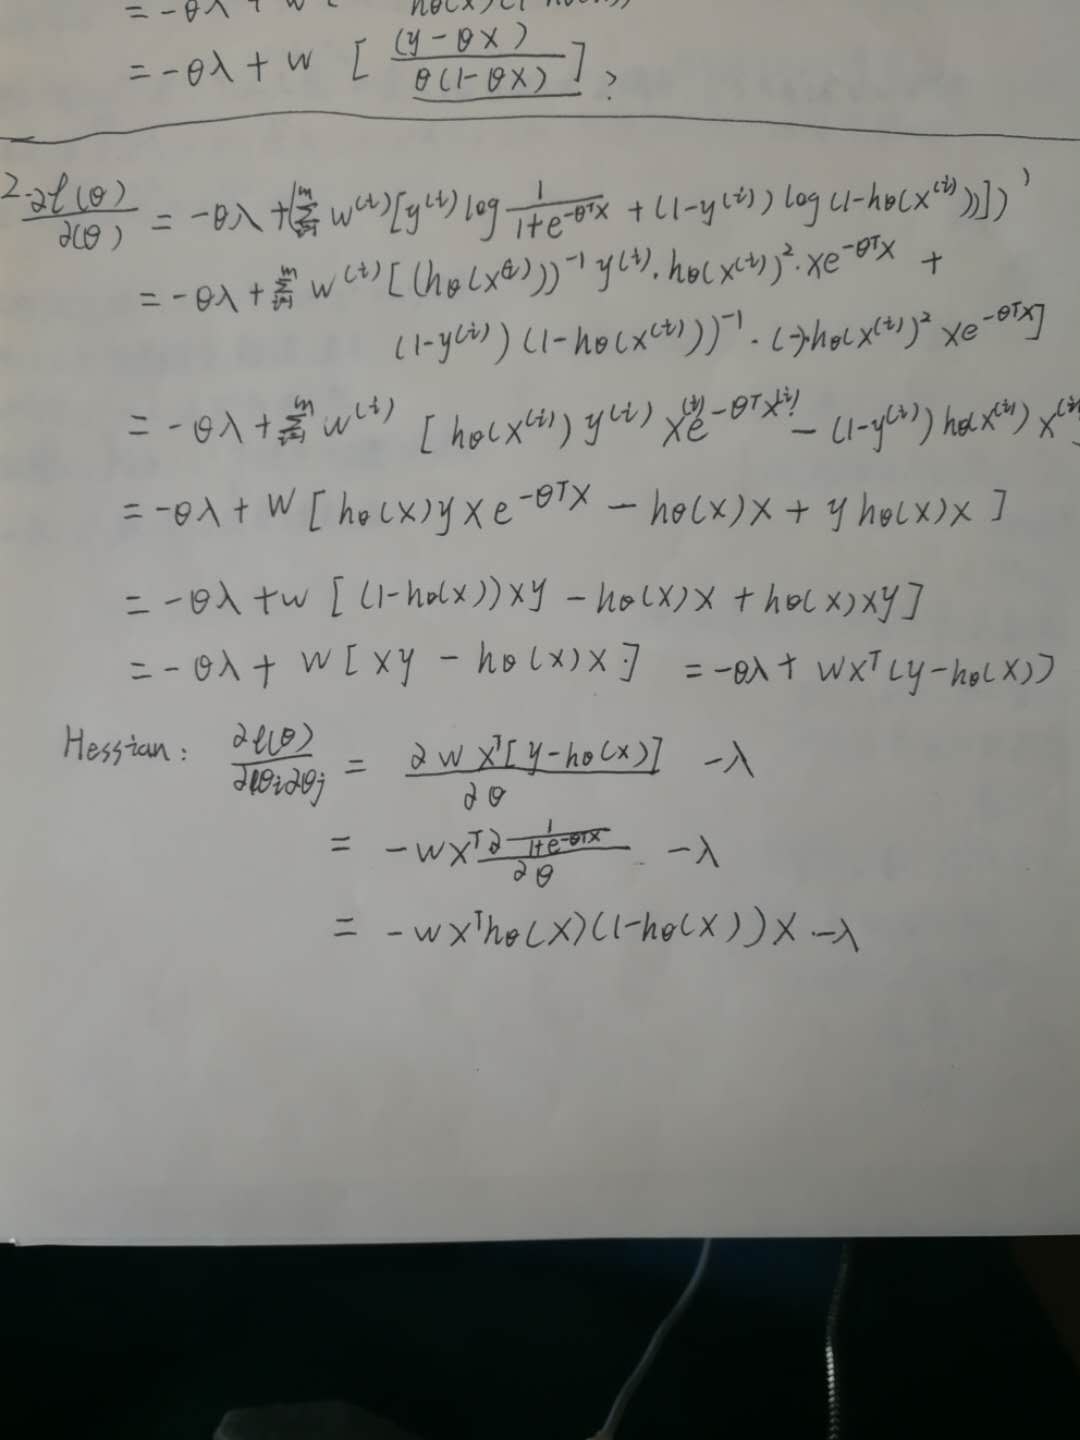 = -θλ + w [ hθ(x)(1-hθ(x))
= -θλ + w [ (y-θx) / θ(1-θx) ] ?
2. ∂ℓ(θ)/∂(θ) = -θλ + (∑_{i=1}^{m} w^{(i)} [y^{(i)} log 1/(1+e^{-θ^T x}) + (1-y^{(i)}) log (1-hθ(x^{(i)}))])'
= -θλ + ∑_{i=1}^{m} w^{(i)} [(hθ(x^{(i)}))^{-1} y^{(i)} · hθ(x^{(i)})^2 · xe^{-θ^T x} +
(1-y^{(i)}) (1-hθ(x^{(i)}))^{-1} · (-)·hθ(x^{(i)})^2 xe^{-θ^T x}]
= -θλ + ∑_{i=1}^{m} w^{(i)} [hθ(x^{(i)}) y^{(i)} x^{(i)} e^{-θ^T x^{(i)}} - (1-y^{(i)}) hθ(x^{(i)}) x^{(i)}]
= -θλ + w [hθ(x) y x e^{-θ^T x} - hθ(x) x + y hθ(x) x ]
= -θλ + w [ (1-hθ(x)) xy - hθ(x) x + hθ(x) xy]
= -θλ + w [ xy - hθ(x) x.] = -θλ + wx^T (y-hθ(x))
Hessian: ∂ℓ(θ)/∂θi∂θj = ∂ w x^T [y-hθ(x)] / ∂θ -λ
= -wx^T ∂ 1/(1+e^{-θ^T x}) / ∂θ -λ
= -wx^T hθ(x)(1-hθ(x)) x -λ